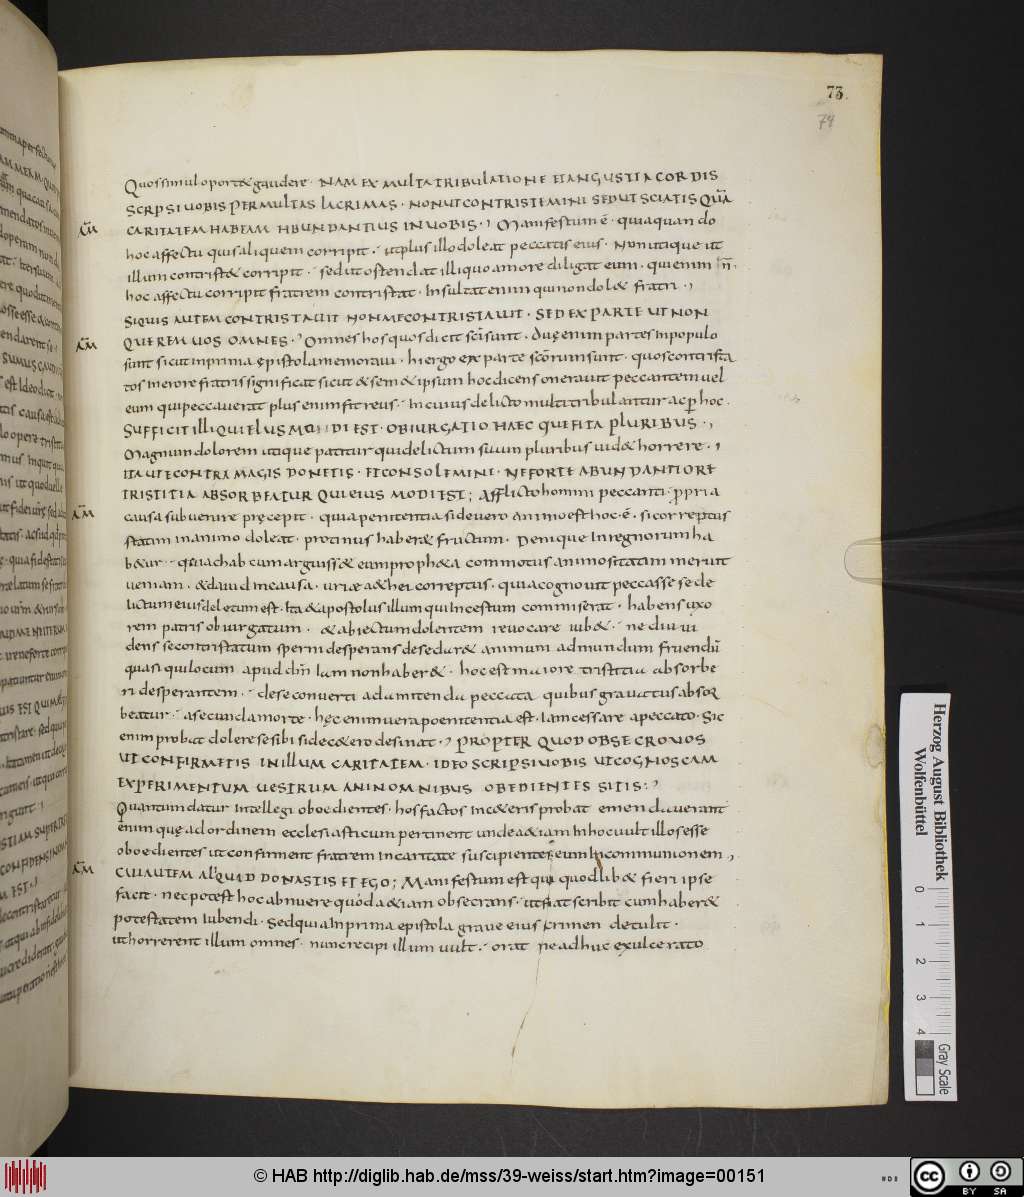 73.
74
Quos simul oport& gaudere · NAM EX MULTA TRIBULATIONE ET ANGUSTIA CORDIS
SCRPSI VOBIS PER MULTAS LACRIMAS · NON UT CONTRISTEMINI SED UT SCIATIS QUĀ
CARITATEM HABEAM HBUNDANTIUS IN VOBIS · Manifestum ē · quia quando
hoc affectu quis aliquem corripit · ut plus illo doleat peccatis eius · Non utique ut
illum contrist& corripit · sed ut ostendat illi quo amore diligat eum · qui enim n̄
hoc affectu corripit fratrem contristat · Insultat enim qui non dol& fratri ·
SI QUIS AUTEM CONTRISTAUIT NON ME CONTRISTAUIT · SED EX PARTE UT NON
QUEREM UOS OMNES · Omnes hos quos dicit sc̄i sunt · Duę enim partes in populo
sunt sicut in prima epistola memoraui · hi ergo ex parte sc̄orum sunt · quos contrista
tos merore fratris significat sicut & sem&ipsum hoc dicens onerauit peccantem uel
eum qui peccauerat plus enim fit reus · In cuius delicto multi tribulantur ac p hoc ·
SUFFICIT ILLI QUI EIUS MODI EST · OBIURGATIO HAEC QUE FIT A PLURIBUS ·
Magnum dolorem utique patitur qui delictum suum pluribus uid& horrere ·
ITA UT E CONTRA MAGIS DONETIS · ET CONSOLEMINI · NE FORTE ABUNDANTIORE
TRISTITIA ABSORBEATUR QUI EIUS MODI EST ; Afflicto homini peccanti · ppria
causa subuenire pręcepit · quia penitentia si de uero animo est hoc · ē · si correptus
statim in animo doleat · protinus haber& fructum · Denique In regnorum ha
b&ur · quia chab cum arguiss& eum proph&a commotus animo statim meruit
ueniam · & dauid in causa · uriæ a&hei correptus · quia cognouit peccasse se de
lictum eius deletum est · Ita & apostolus illum qui Incestum commiserat · habens uxo
rem patris obiurgatum · & abiectum dolentem reuocare iub& · ne diu ui
dens se contristatum sperni desperans de se dar& animum ad mundum fruendū
quasi qui locum apud dm̄ Iam non haber& · hoc est maiore tristitia absorbe
ri desperantem · de se conuerti ad amittenda peccata quibus grauatus absor
beatur · a secunda morte · hęc enim uera poenitentia est · Iam cessare a peccato · Sic
enim probat dolere se sibi si dec&ero desinat · PROPTER QUOD OBSECRO UOS
UT CONFIRMETIS IN ILLUM CARITATEM · IDEO SCRIPSI UOBIS UT COGNOSCAM
EXPERIMENTUM UESTRUM AN IN OMNIBUS OBEDIENTES SITIS ·
Quantum datur intellegi oboedientes · hos factos In c&eris probat emendauerant
enim quę ad ordinem ecclesiasticum pertinent unde &iam In hoc uult illos esse
oboedientes ut confirment fratrem in caritate suscipientes eum In communionem ,
CUI AUTEM ALIQUID DONASTIS ET EGO ; Manifestum est quia quod lib& fieri ipse
facit · nec potest hoc abnuere quod a &iam obsecrans · ut fiat scribit cum haber&
potestatem Iubendi · Sed quia In prima epistola graue eius crimen detulit ·
ut horrerent illum omnes · nunc recipi illum uult · orat ne adhuc exulcerato
Herzog August Bibliothek
Wolfenbüttel
0 1 2 3 4
Gray Scale
© HAB http://diglib.hab.de/mss/39-weiss/start.htm?image=00151
cc BY SA